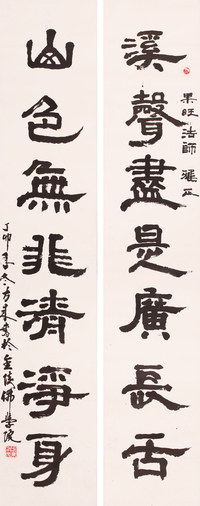 溪聲盡是廣長舌
果旺法師 正
山色無非清淨身
丁卯冬方於金陵佛學院